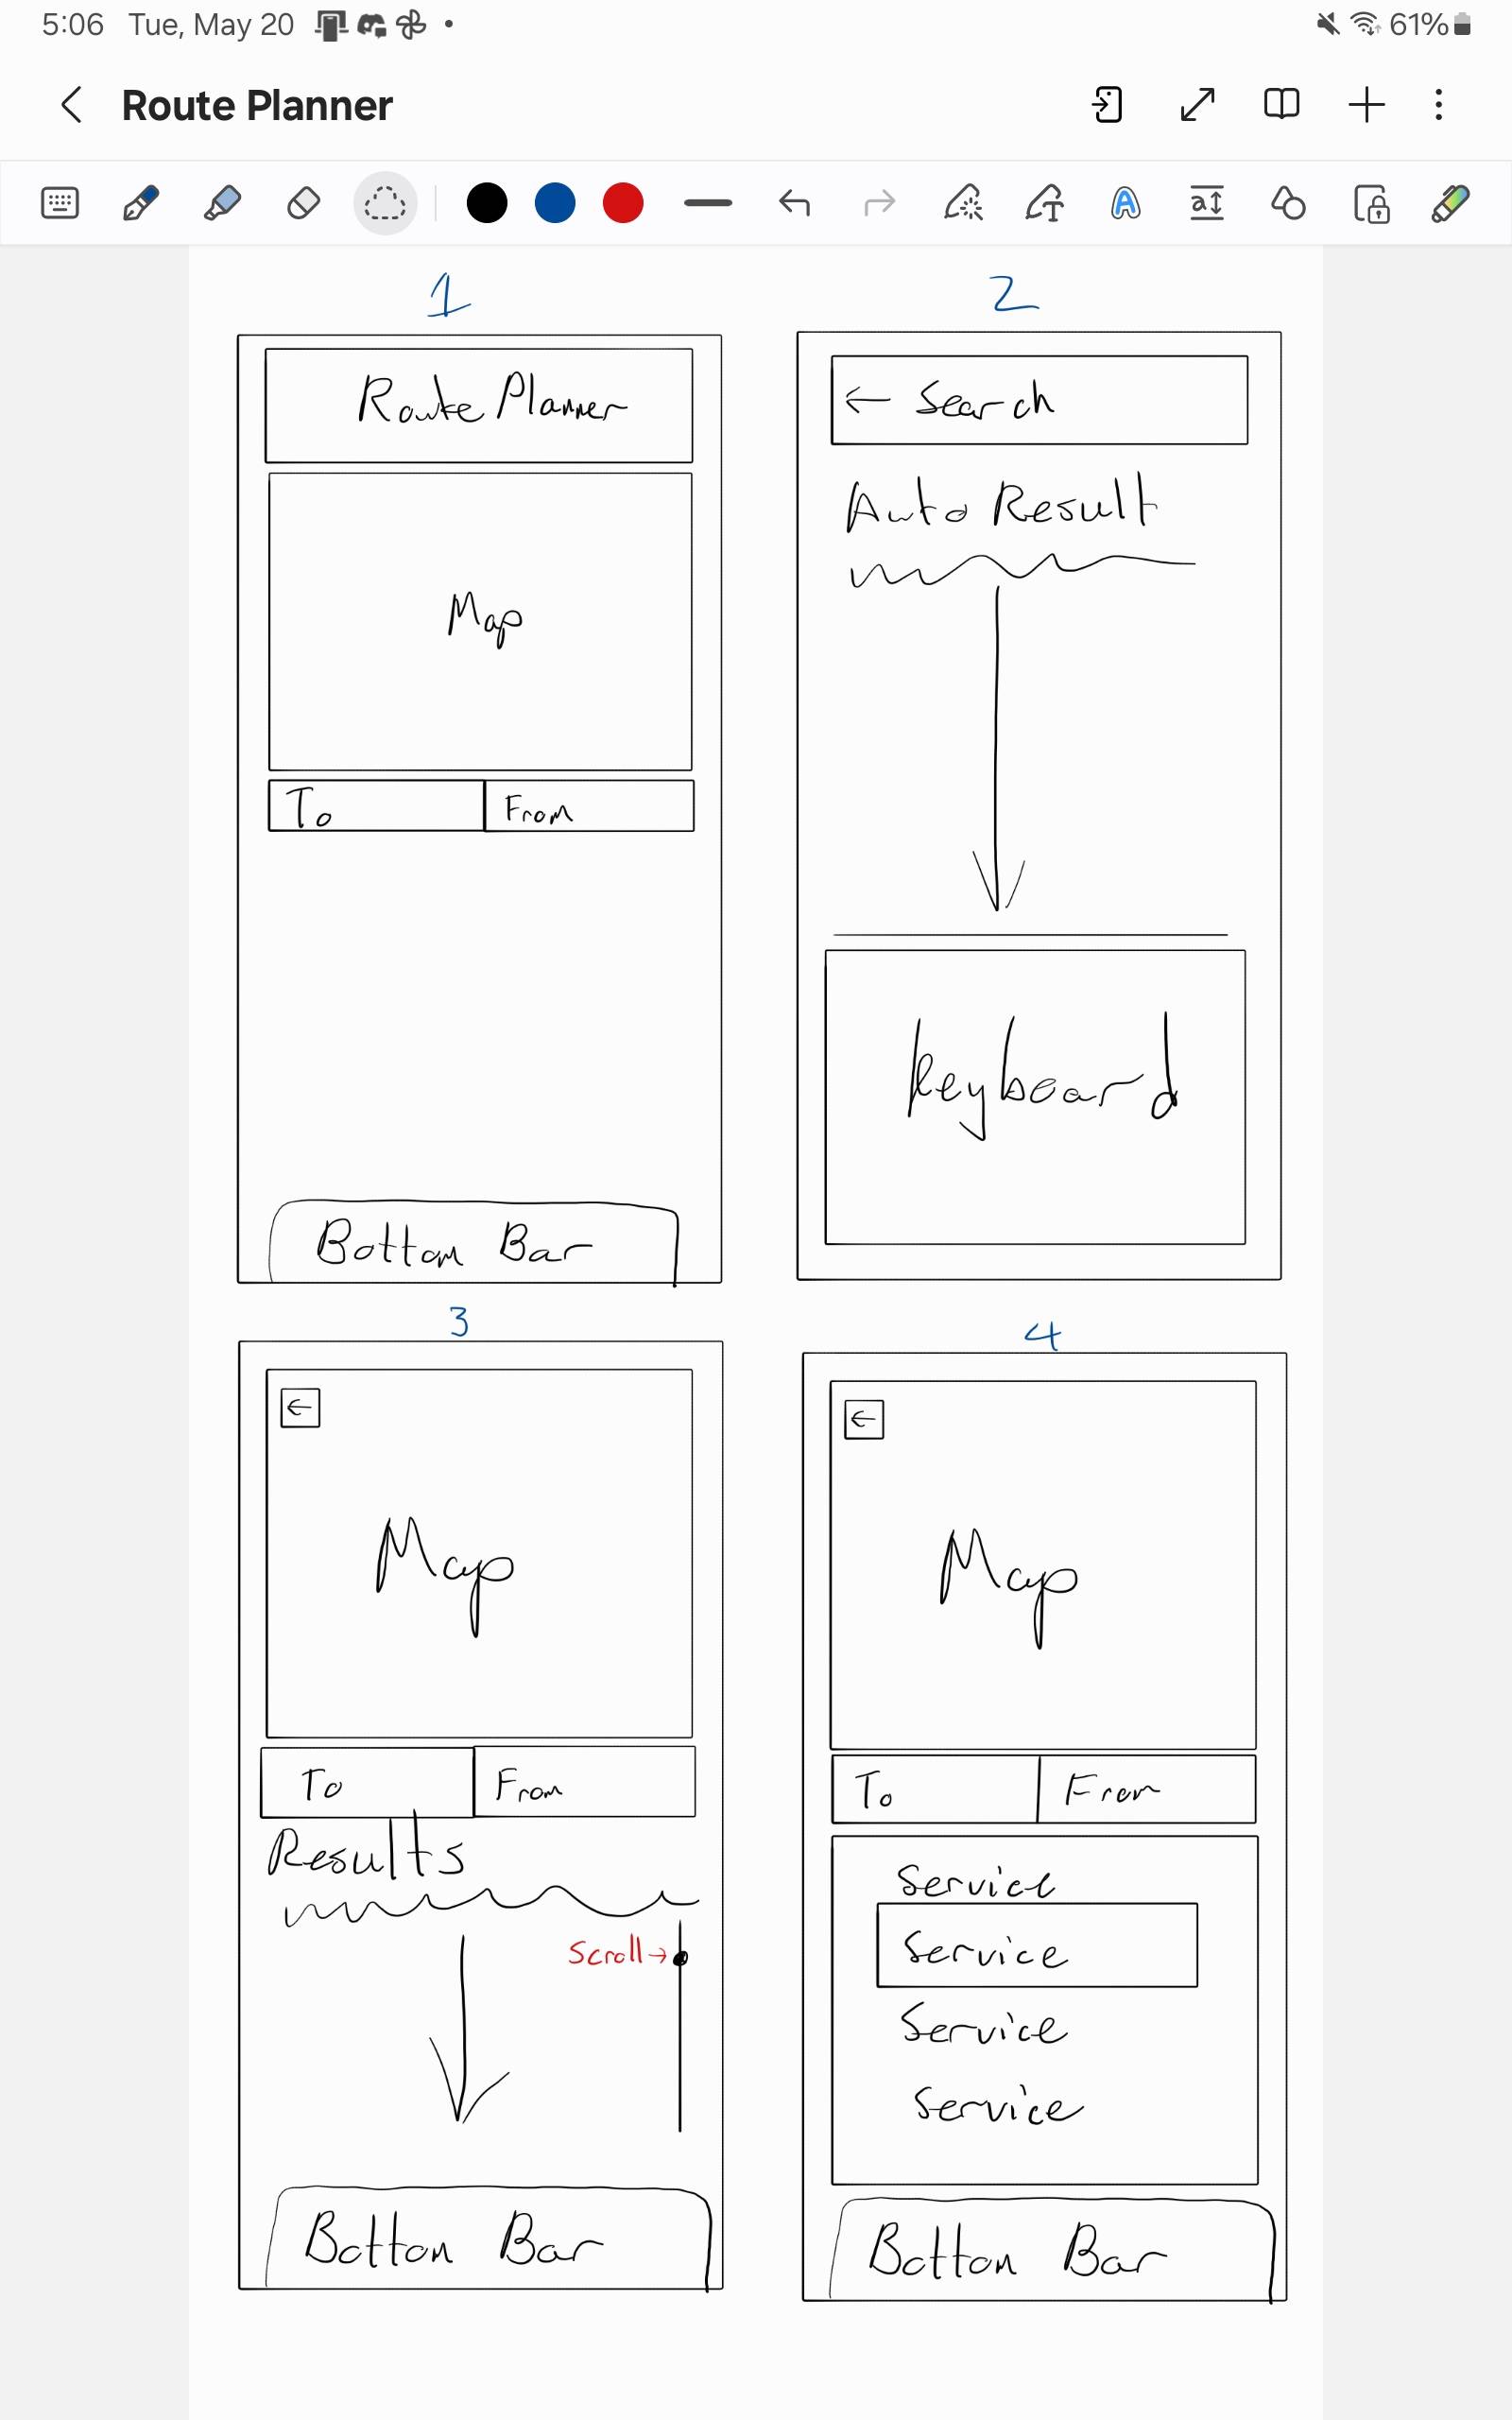 5:06 Tue, May 20 61%
Route Planner
1
Route Planner
Map
To From
Bottom Bar
2
← Search
Auto Result
Keyboard
3
←
Map
To From
Results
Scroll→
Bottom Bar
4
←
Map
To From
Service
Service
Service
Service
Bottom Bar